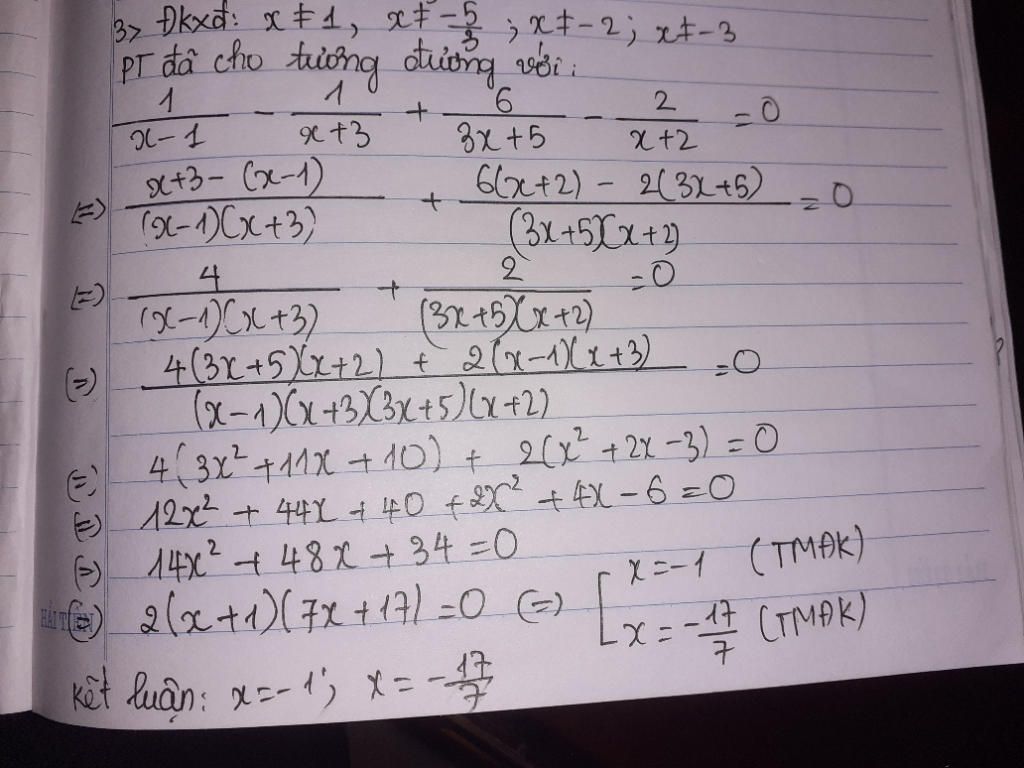 3> Đkxđ: x ≠ 1, x ≠ -5/3 ; x ≠ -2; x ≠ -3
PT đã cho tương đương với:
1/(x-1) - 1/(x+3) + 6/(3x+5) - 2/(x+2) = 0
(=) (x+3-(x-1))/((x-1)(x+3)) + (6(x+2) - 2(3x+5))/((3x+5)(x+2)) = 0
(=) 4/((x-1)(x+3)) + 2/((3x+5)(x+2)) = 0
(=) (4(3x+5)(x+2) + 2(x-1)(x+3))/((x-1)(x+3)(3x+5)(x+2)) = 0
(=) 4(3x²+11x+10) + 2(x²+2x-3) = 0
(=) 12x² + 44x + 40 + 2x² + 4x - 6 = 0
(=) 14x² + 48x + 34 = 0
(=) 2(x+1)(7x+17) = 0 (=) [ x = -1 (TMĐK)
x = -17/7 (TMĐK)
Kết luận: x = -1; x = -17/7